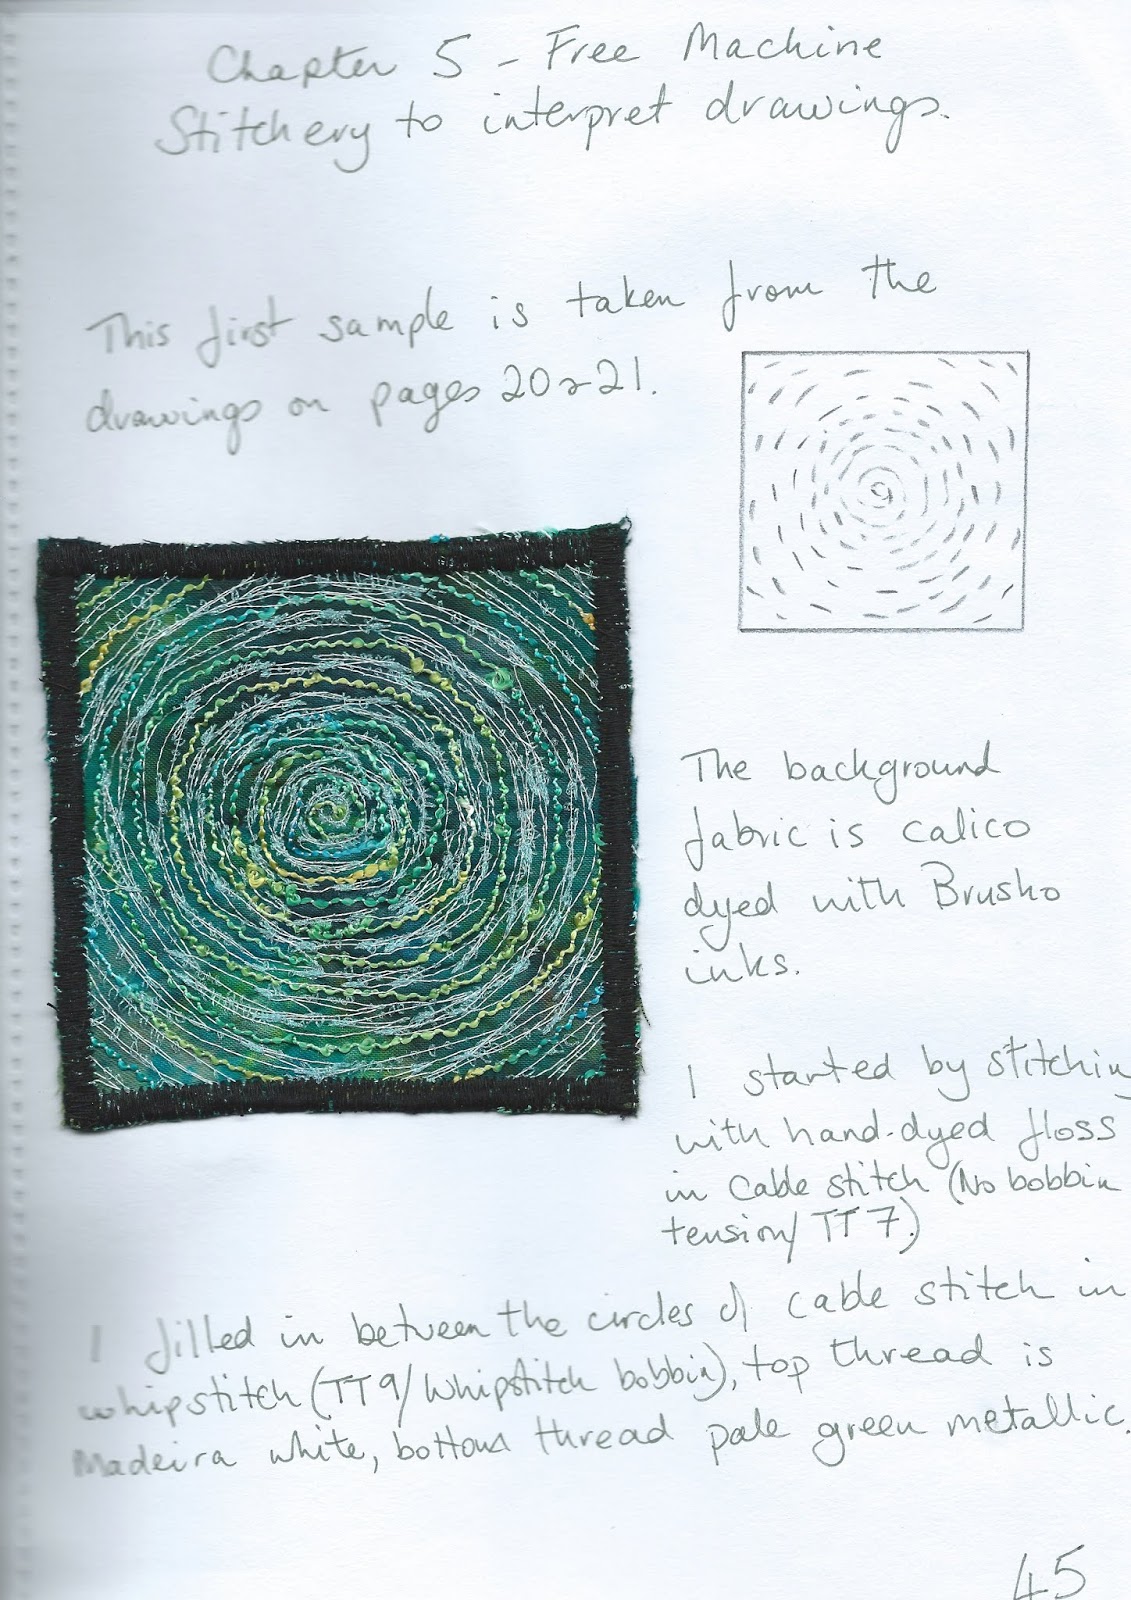 Chapter 5 - Free Machine
Stitchery to interpret drawings.
This first sample is taken from the
drawings on pages 20 & 21.
The background
fabric is calico
dyed with Brusho
inks.
I started by stitching
with hand-dyed floss
in cable stitch (No bobbin
tension/ TT 7.)
I filled in between the circles of cable stitch in
whipstitch (TT9/Whipstitch bobbin), top thread is
Madeira white, bottom thread pale green metallic.
45